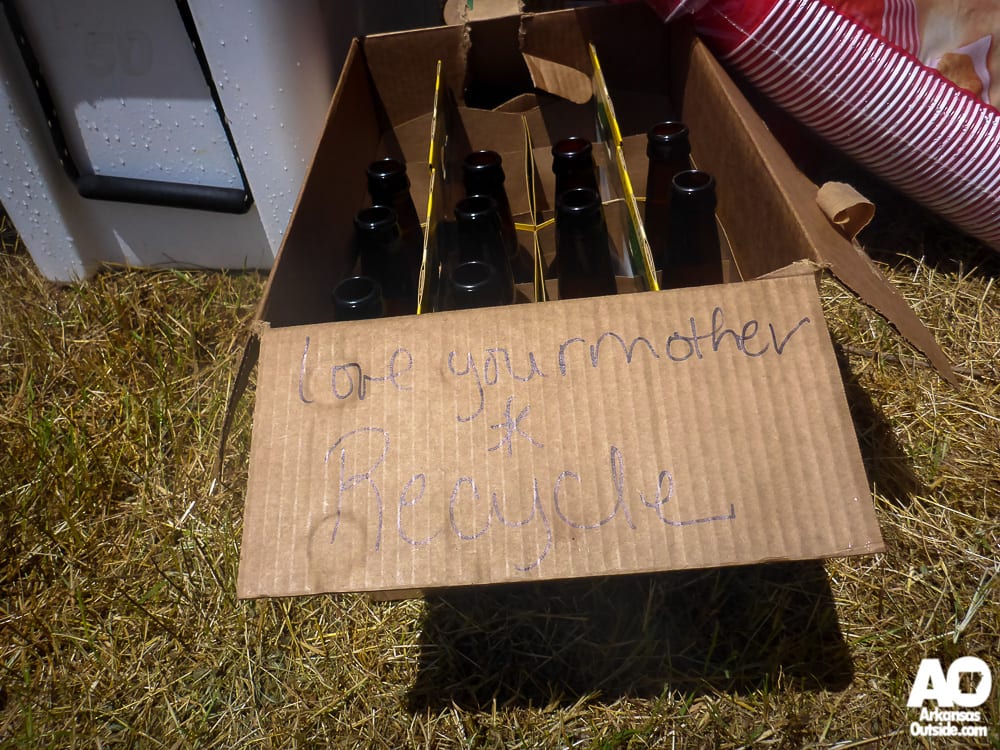 50
love your mother
*
Recycle
AO
Arkansas
Outside.com